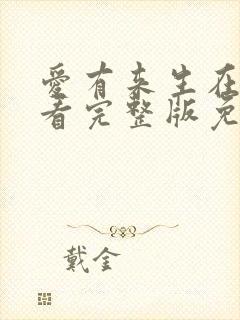 愛有来生在
看完整版免
戴金